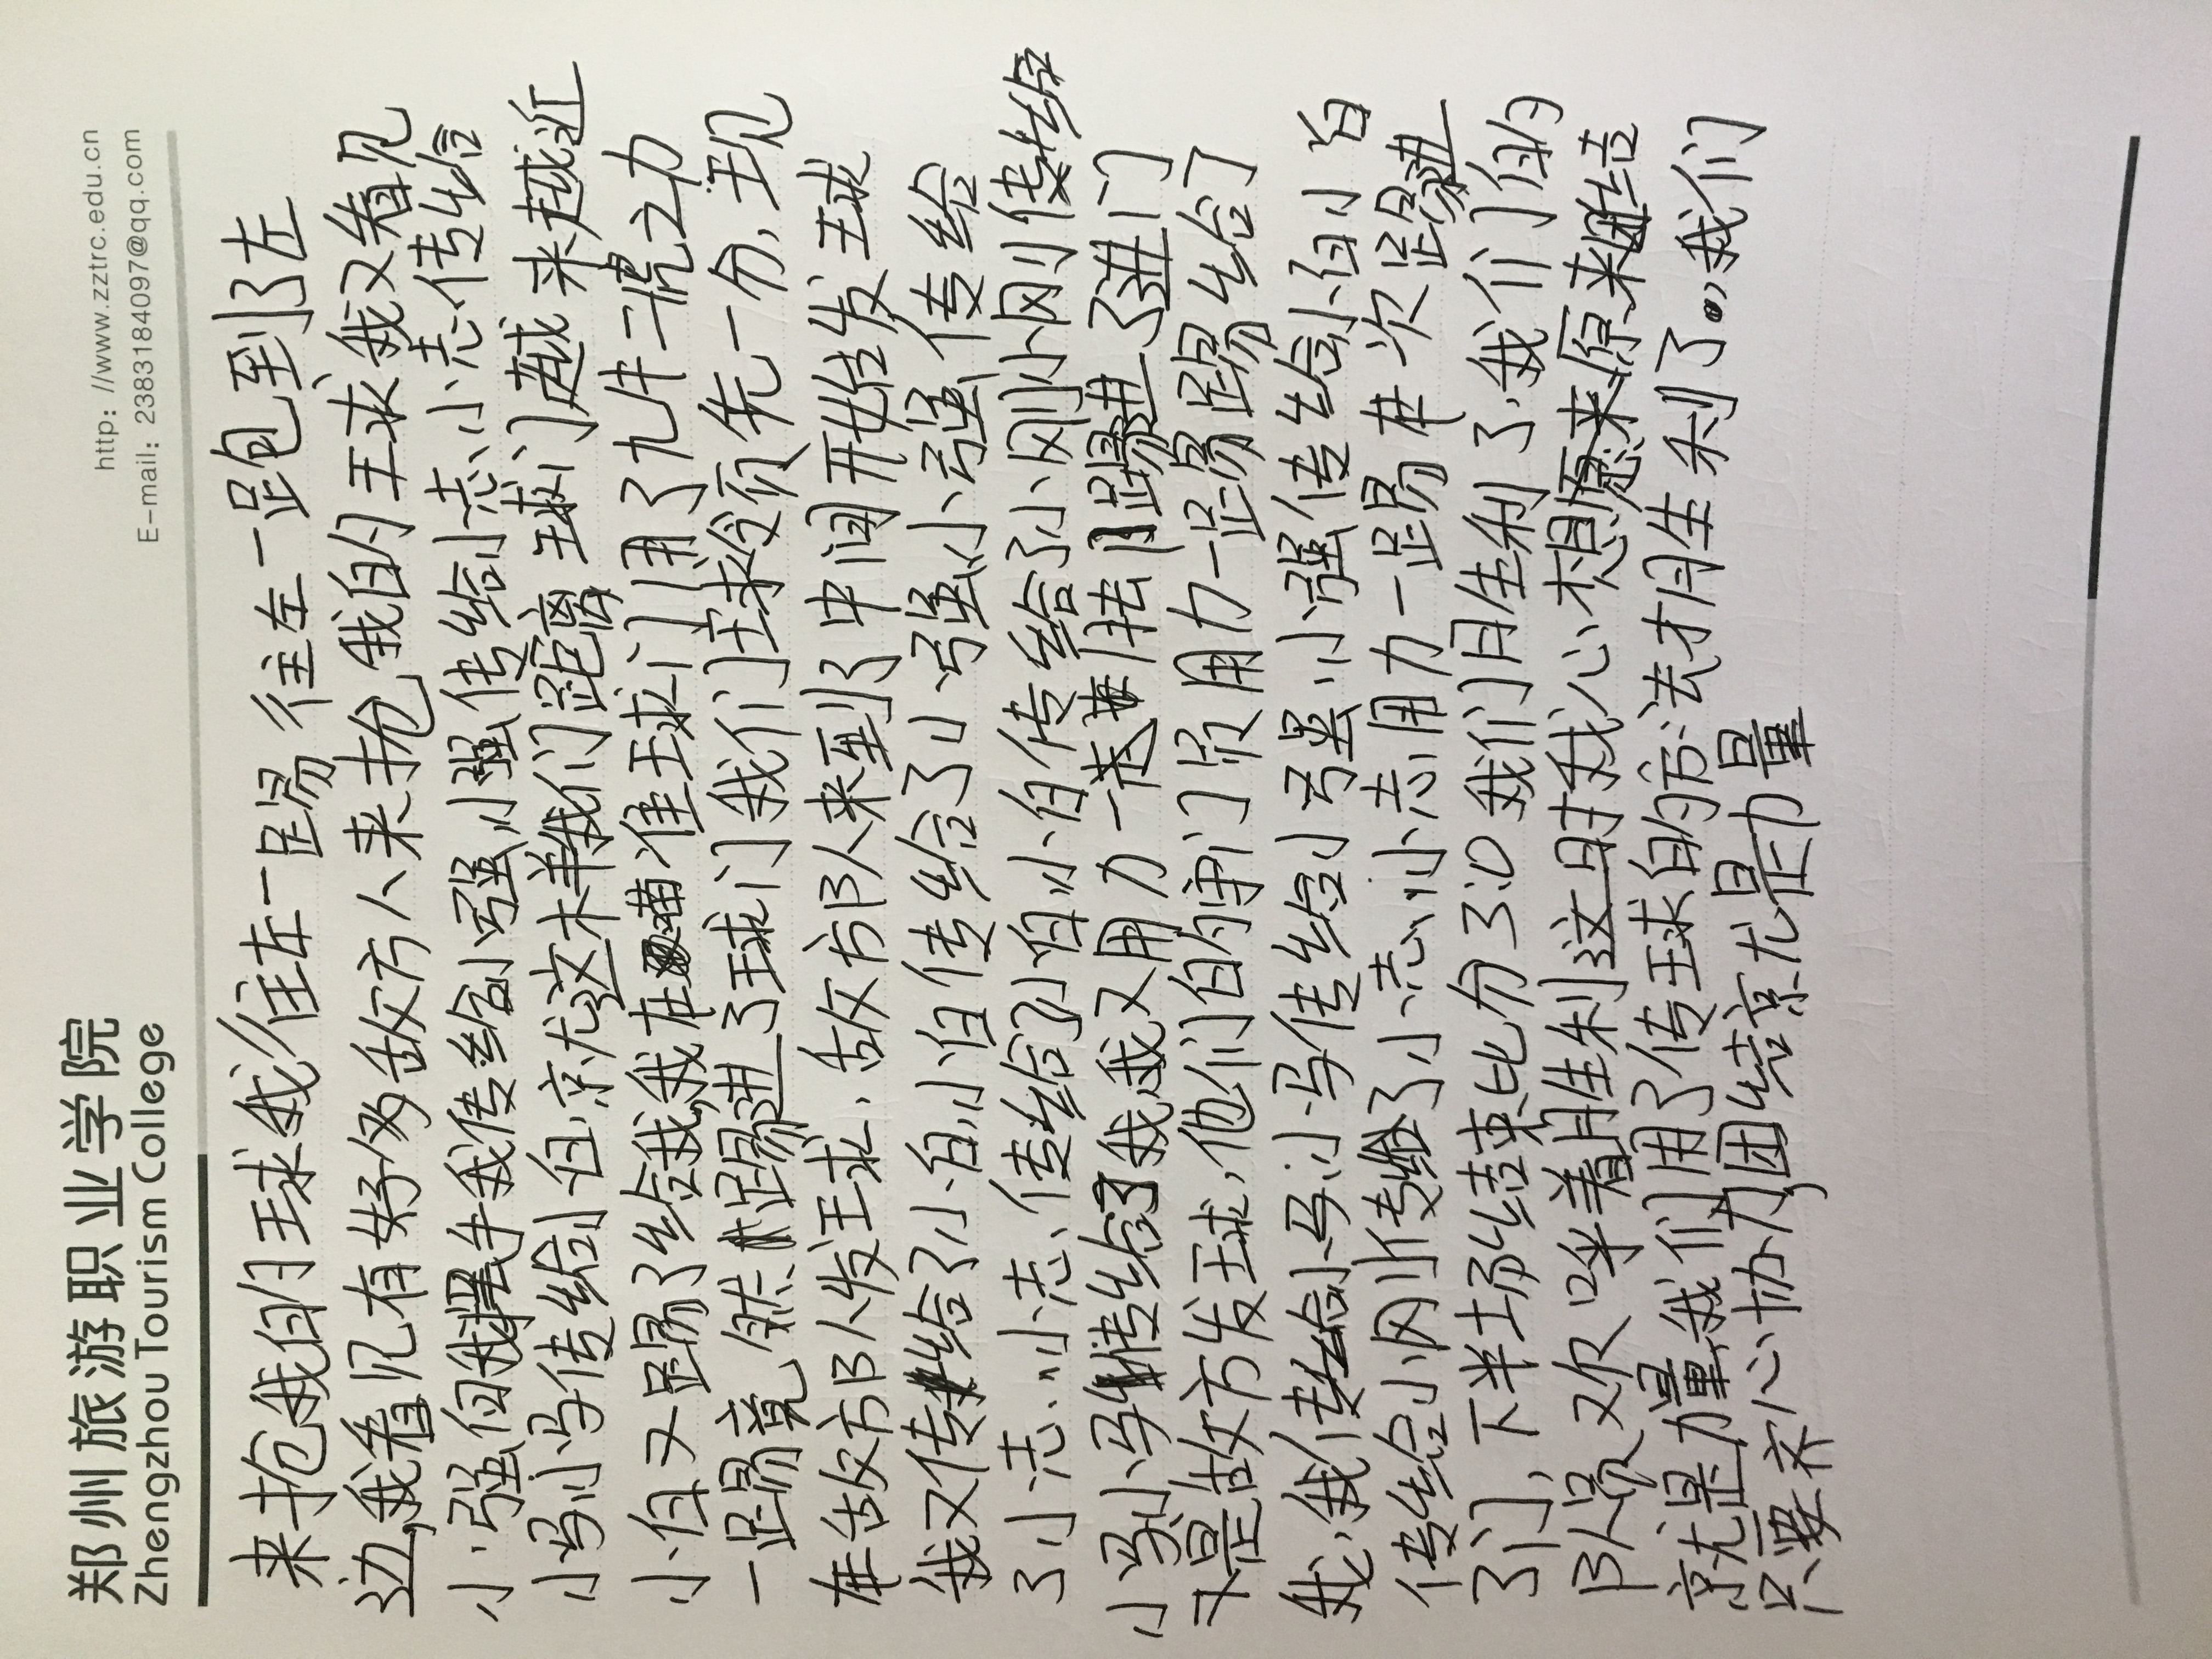 郑州旅游职业学院
Zhengzhou Tourism College
http: //www.zztrc.edu.cn
E-mail: 2383184097@qq.com
来抢我的球我往左一踢往左一跑到了左
边,我看见有好多敌方人来抢我的球我又看见
小强向我挥手我传给小强,小强传给小志、小志传给
小冯小冯传给小白,就这样我们距离球门越来越近
小白又踢了给我,我在瞄准球门用了九牛二虎之力
一踢竟然踢进了球门我们球领先一分,现
在敌方队人发球、敌方队人来到了中间开始发球
我又传给了小白,小白传给了小强小强传给
了小志、小志、传给了小白小白传给了小刚小刚传给
小冯小冯传给了我,我又用力一踢进了进门
又是敌方发球,他们的守门员用力一踢踢给了
我,我传给小冯小冯传给小强小强传给小白小白
传给小刚小刚传给了小志、小志用力一踢在次踢进
了门,下半场结束比分3:0我们胜利了,我们的
队员欢呼着胜利这时我心想原来团结
就是力量,我们用了传球的方法才胜利了。,我们
只要齐心协力,团结就是力量